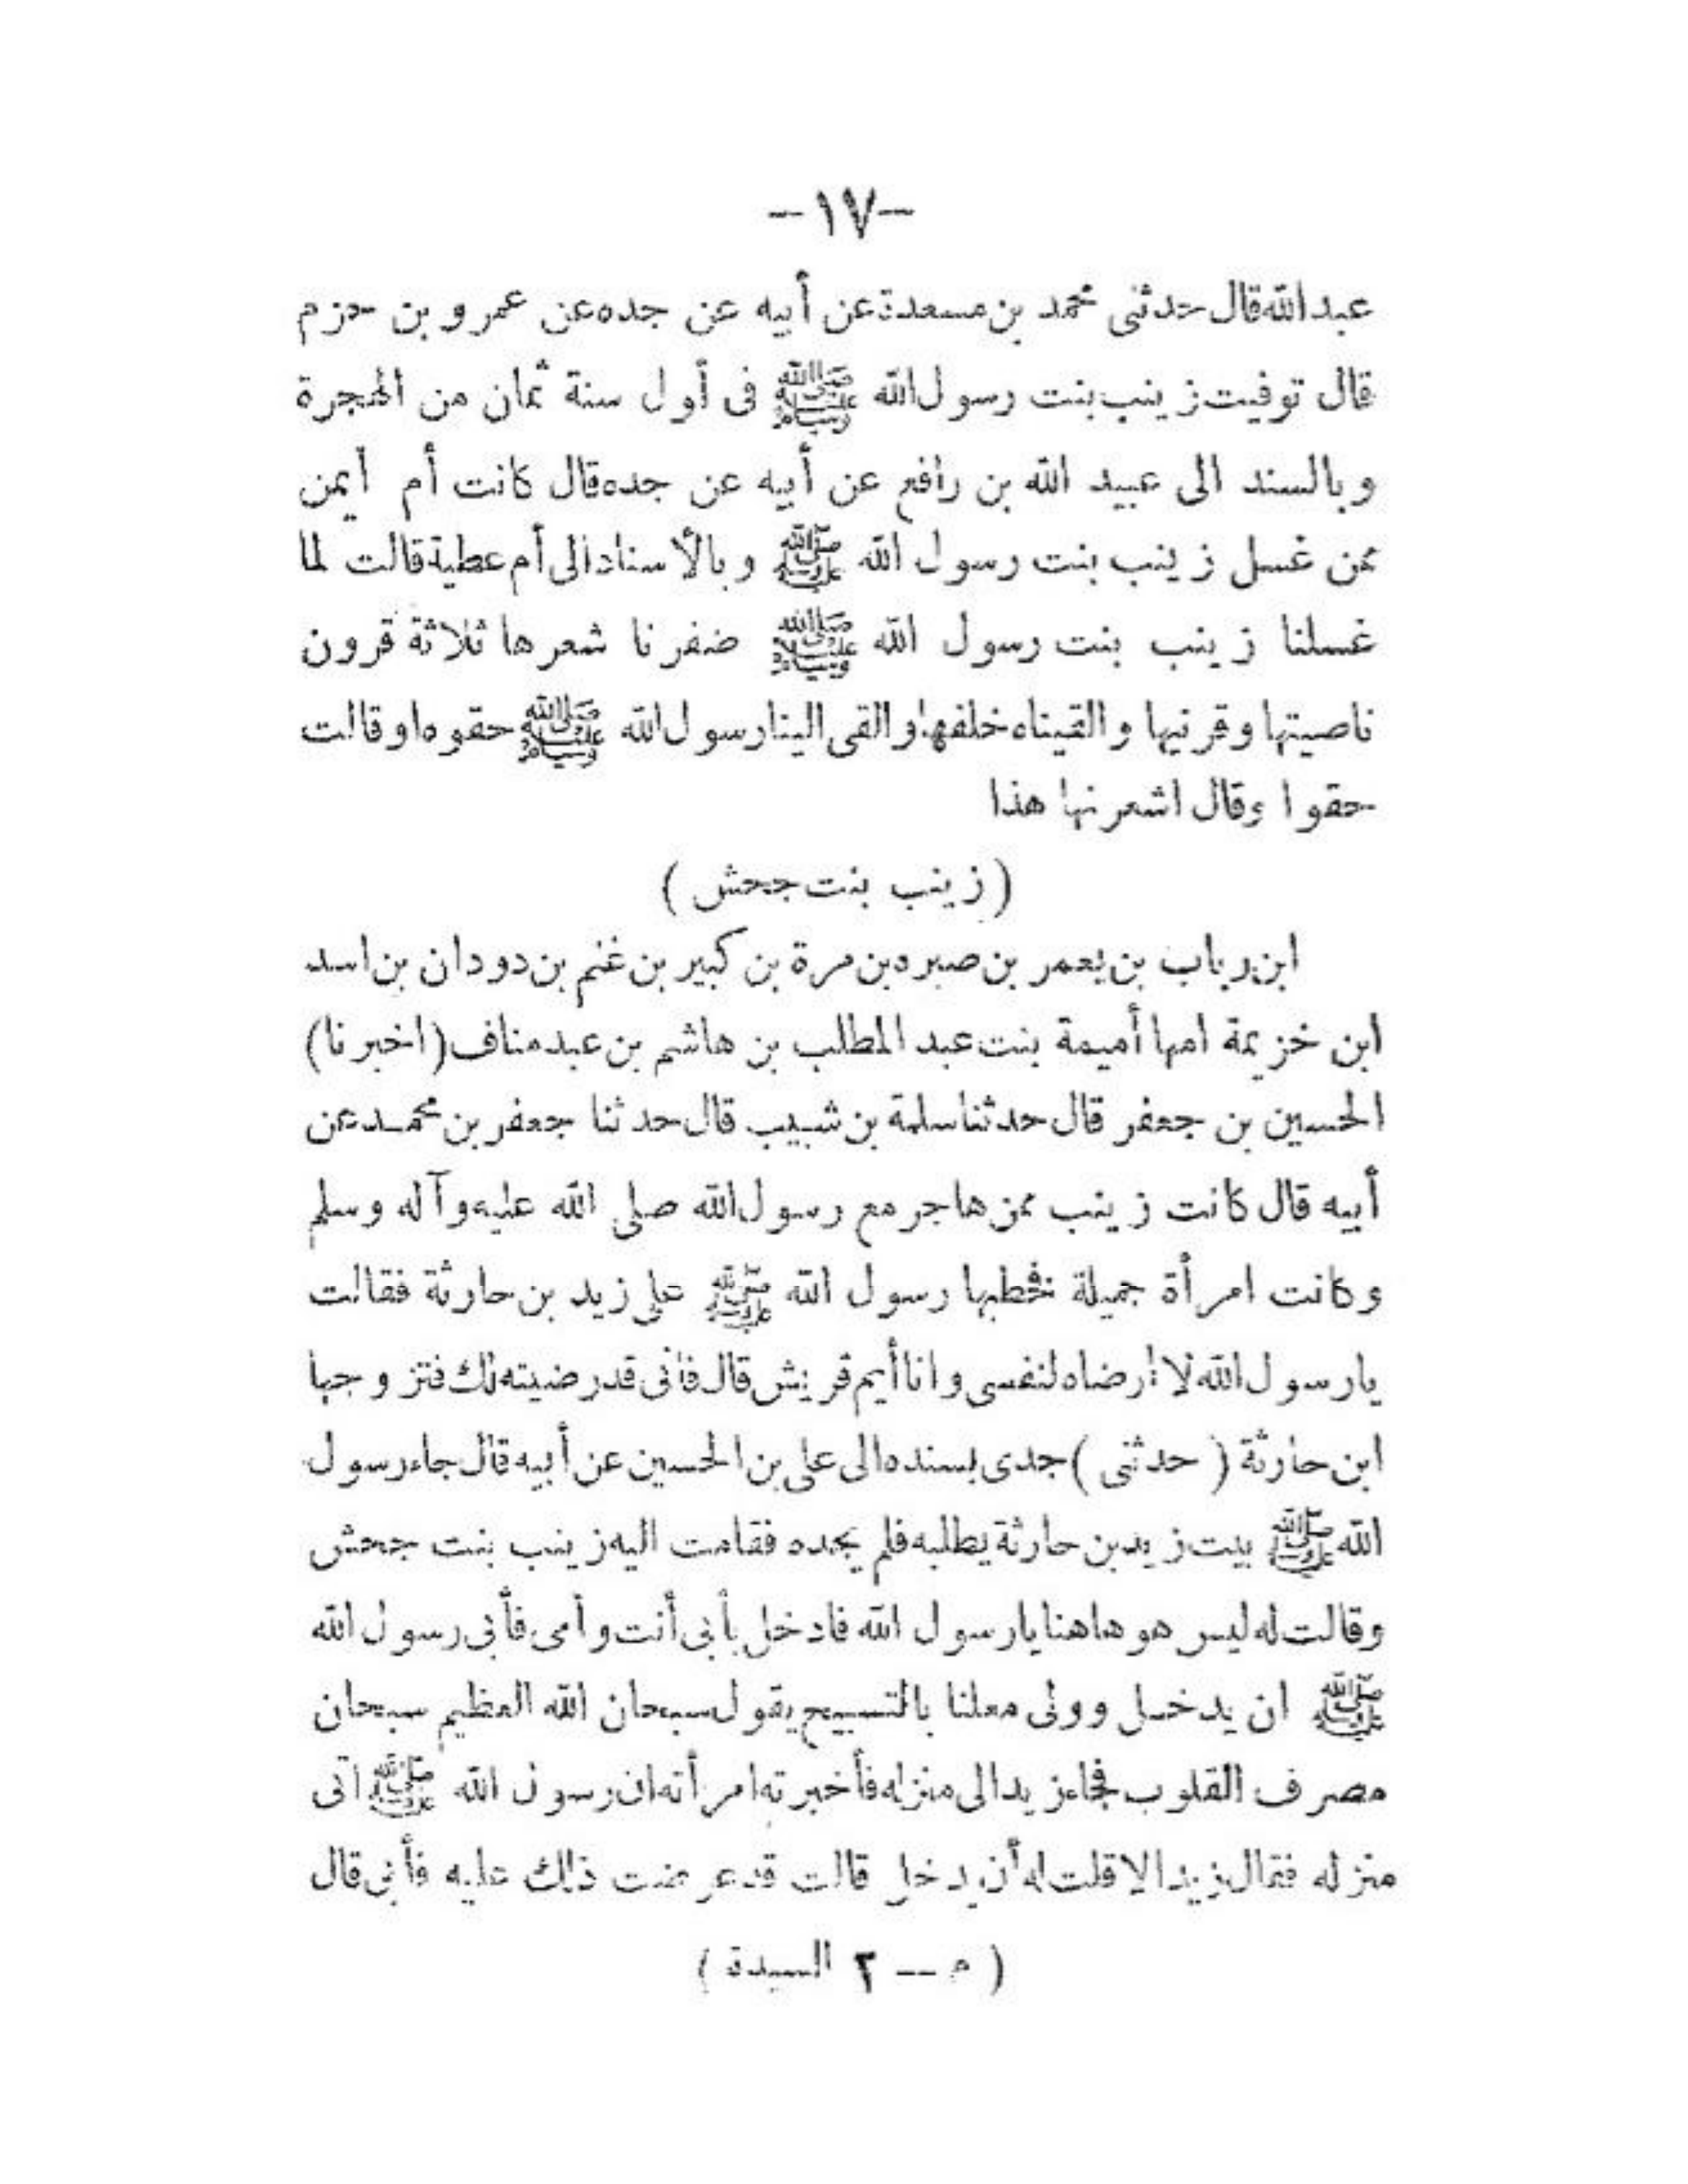 -١٧-
عبدالله قال حدثنى محمد بن مسعدة عن أبيه عن جده عن عمرو بن حزم
قال توفيت زينب بنت رسول الله ﷺ فى أول سنة ثمان من الهجرة
وبالسند الى عبيد الله بن رافع عن أبيه عن جده قال كانت أم أيمن
ممن غسل زينب بنت رسول الله ﷺ وبالأسناد الى أم عطية قالت لما
غسلنا زينب بنت رسول الله ﷺ ضفرنا شعرها ثلاثة قرون
ناصيتها وقرنيها والقيناه خلفها والقى الينا رسول الله ﷺ حقوه او قالت
حقوا وقال اشعرنها هذا
( زينب بنت جحش )
ابن رباب بن يعمر بن صبره بن مرة بن كبير بن غنم بن دودان بن اسد
ابن خزيمة امها أميمة بنت عبد المطلب بن هاشم بن عبد مناف ( اخبرنا )
الحسين بن جعفر قال حدثنا سلمة بن شبيب قال حدثنا جعفر بن محمد عن
أبيه قال كانت زينب ممن هاجر مع رسول الله صلى الله عليه وآله وسلم
وكانت امرأة جميلة فخطبها رسول الله ﷺ على زيد بن حارثة فقالت
يا رسول الله لا أرضاه لنفسى وانا أيم قريش قال فانى قد رضيته لك فتزوجها
ابن حارثة ( حدثنى ) جدى بسنده الى على بن الحسين عن أبيه قال جاء رسول
الله ﷺ بيت زيد بن حارثة يطلبه فلم يجده فقامت اليه زينب بنت جحش
وقالت له ليس هو هاهنا يا رسول الله فادخل بأبى أنت وأمى فأبى رسول الله
ﷺ ان يدخل وولى معلنا بالتسبيح يقول سبحان الله العظيم سبحان
مصرف القلوب فجاء زيد الى منزله فأخبرته امرأته ان رسول الله ﷺ اتى
منزله فقال زيد الا قلت له أن يدخل قالت قد عرضت ذلك عليه فأبى قال
( م — ٢ السيدة )